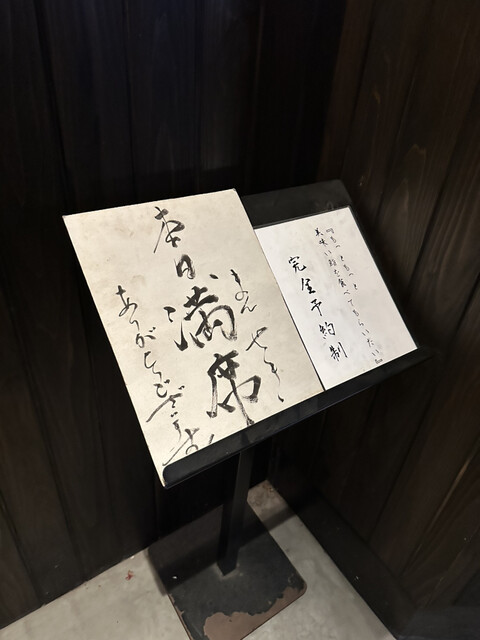 本日、満席
まんせき
ありがとうございます
『もっともっと
美味い鮨を食べてもらいたい』
完全予約制